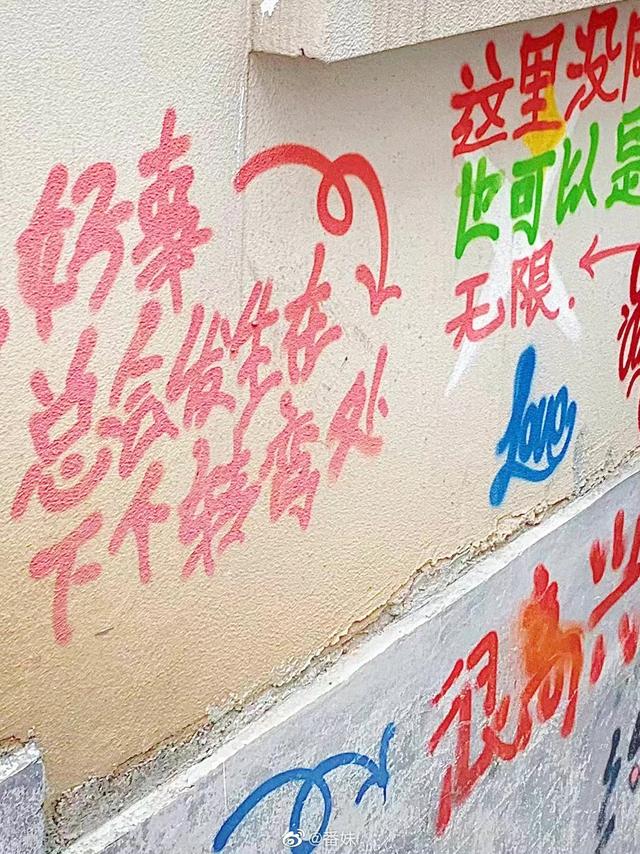 好事
总会发生在
下个转弯处
这里没
也可以是
无限.
Love
很高兴
@番妹